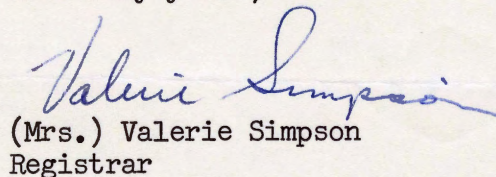 Valerie Simpson
(Mrs.) Valerie Simpson
Registrar